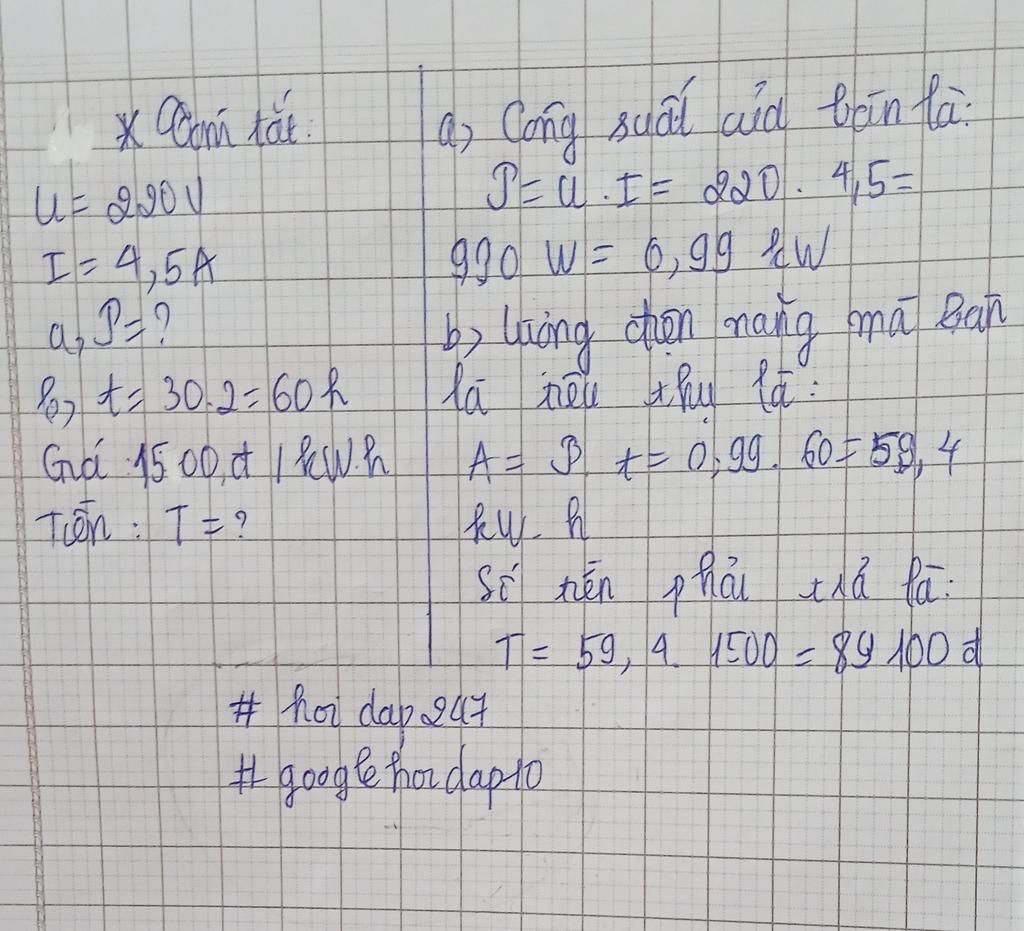 * Tóm tắt:
U = 220V
I = 4,5A
a, P = ?
b, t = 30.2 = 60h
Giá 1500,đ / kW.h
Tiền : T = ?
a, Công suất của bàn là:
P = U . I = 220 . 4,5 =
990 W = 0,99 kW
b, lượng điện năng mà bàn
là tiêu thụ là:
A = P. t = 0,99. 60 = 59,4
kW. h
Số tiền phải trả là:
T = 59,4. 1500 = 89 100 đ
# hoi dap 247
# googlehoidap10